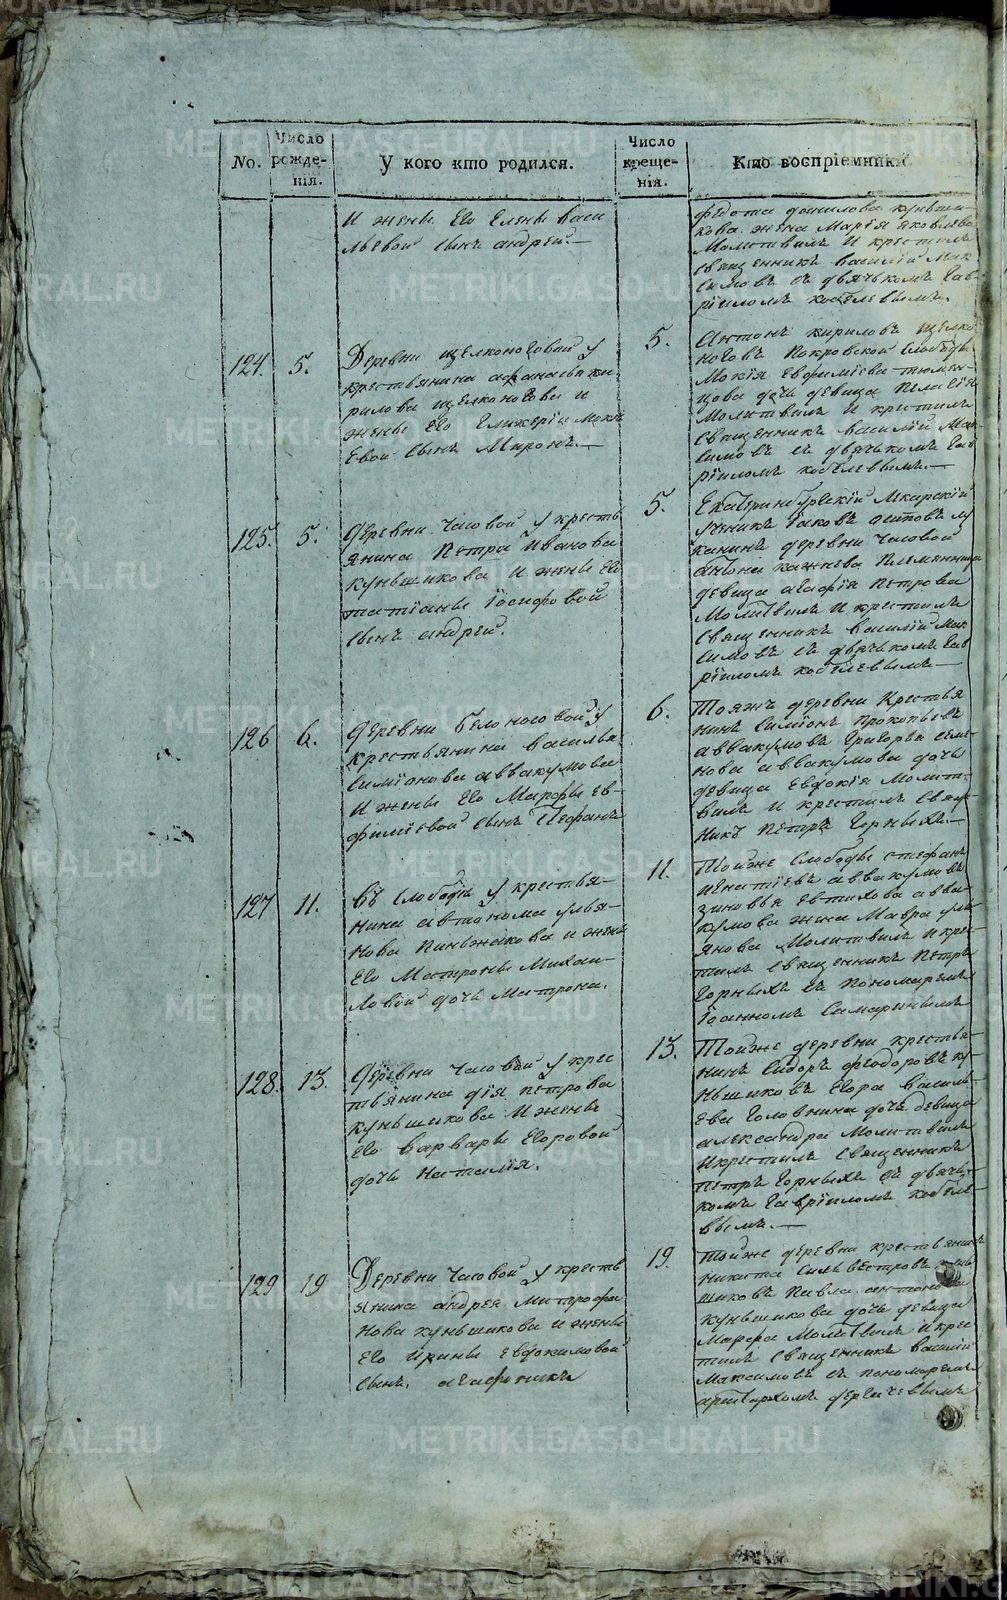 No.
Число
рожде-
нія.
У кого кто родился.
Число
креще-
нія.
Кто воспріемники
И жены Его Елены васи
льевой Сынъ андрей.—
федота данилова куньщи-
кова жена Марія яковлева
Молитвилъ И крестилъ
священникъ василій Мак
симовъ съ дьячькомъ Гав
ріиломъ кобелевымъ.
124. 5.
Деревни щелконоговой у
крестьянина афанасья ки
рилова щелконогова и
жены Его Гликеріи Мокі
Евой Сынъ Миронъ.—
5. Антонъ кириловъ щелко
ноговъ Покровской Слободы
Мокія Евфиміева тюмен-
цова дочь девица Пелагія
Молитвилъ И крестилъ
священникъ василій Мак
симовъ съ дьячькомъ Гав
ріиломъ кобелевымъ.—
125. 5.
деревни Часовой у кресть
янина Петра Иванова
куньщикова И жены Его
татіаны Іосифовой
Сынъ андрей.
5. Екатеринбургскій Лекарскій
ученикъ Іаковъ осиповъ лу
канинъ деревни Часовой
Племянница
девица агафія Петрова
Молитвилъ И крестилъ
священникъ василій Мак
симовъ съ дьячькомъ Гав
ріиломъ кобелевымъ—
126 6.
деревни Белоносовой у
крестьянина василья
Симіонова аввакумова
И жены Его Марфы Ев-
фиміевой Сынъ Стефанъ
6. Тояжъ деревни Крестья
нинъ Симіонъ Прокопьевъ
аввакумовъ Григорья семе-
нова аввакумова дочь
девица Евдокія Молит-
вилъ И крестилъ Свящ
никъ Петръ Горныхъ.—
127 11.
Въ Слободы у крестья-
нина автонома улья-
нова Пиньжакова и жены
Его Матроны Михаи-
ловой дочь Матрона.
11. Тойже Слободы стефанъ
игнатіевъ аввакумовъ
зиновья Евтихова авва-
кумова жена Мавра улі-
янова Молитвилъ и кре-
тилъ священникъ Петръ
Горныхъ съ Пономаремъ
Іоанномъ Самаринымъ
128. 13.
деревни Часовой у крес
тьянина петрова
куньщикова И жены
Его варвары Егоровой
дочь наталія.
13. Тойже деревни крестья-
нинъ Сидоръ феодоровъ ку-
ньщиковъ Егора василь-
Ева Головнина дочь девица
александра Молитвилъ
Икрестилъ Священникъ
Петръ Горныхъ съ дьячь-
комъ Гавріиломъ кобеле-
вымъ.—
129 19
Деревни Часовой у кресть
янина андрея Митрофа
нова куньщикова и жены
Его Ирины Евдокимовой
Сынъ. агафоникъ
19. Тойже деревни крестьянинъ
Никита Сильвестровъ кунь
щиковъ Павла антоно
куньщикова дочь девица
Марфа Молитвилъ и крес
тилъ священникъ василій
Максимовъ съ пономаремъ
аристархомъ дерягевымъ
METRIKI.GASO-URAL.RU